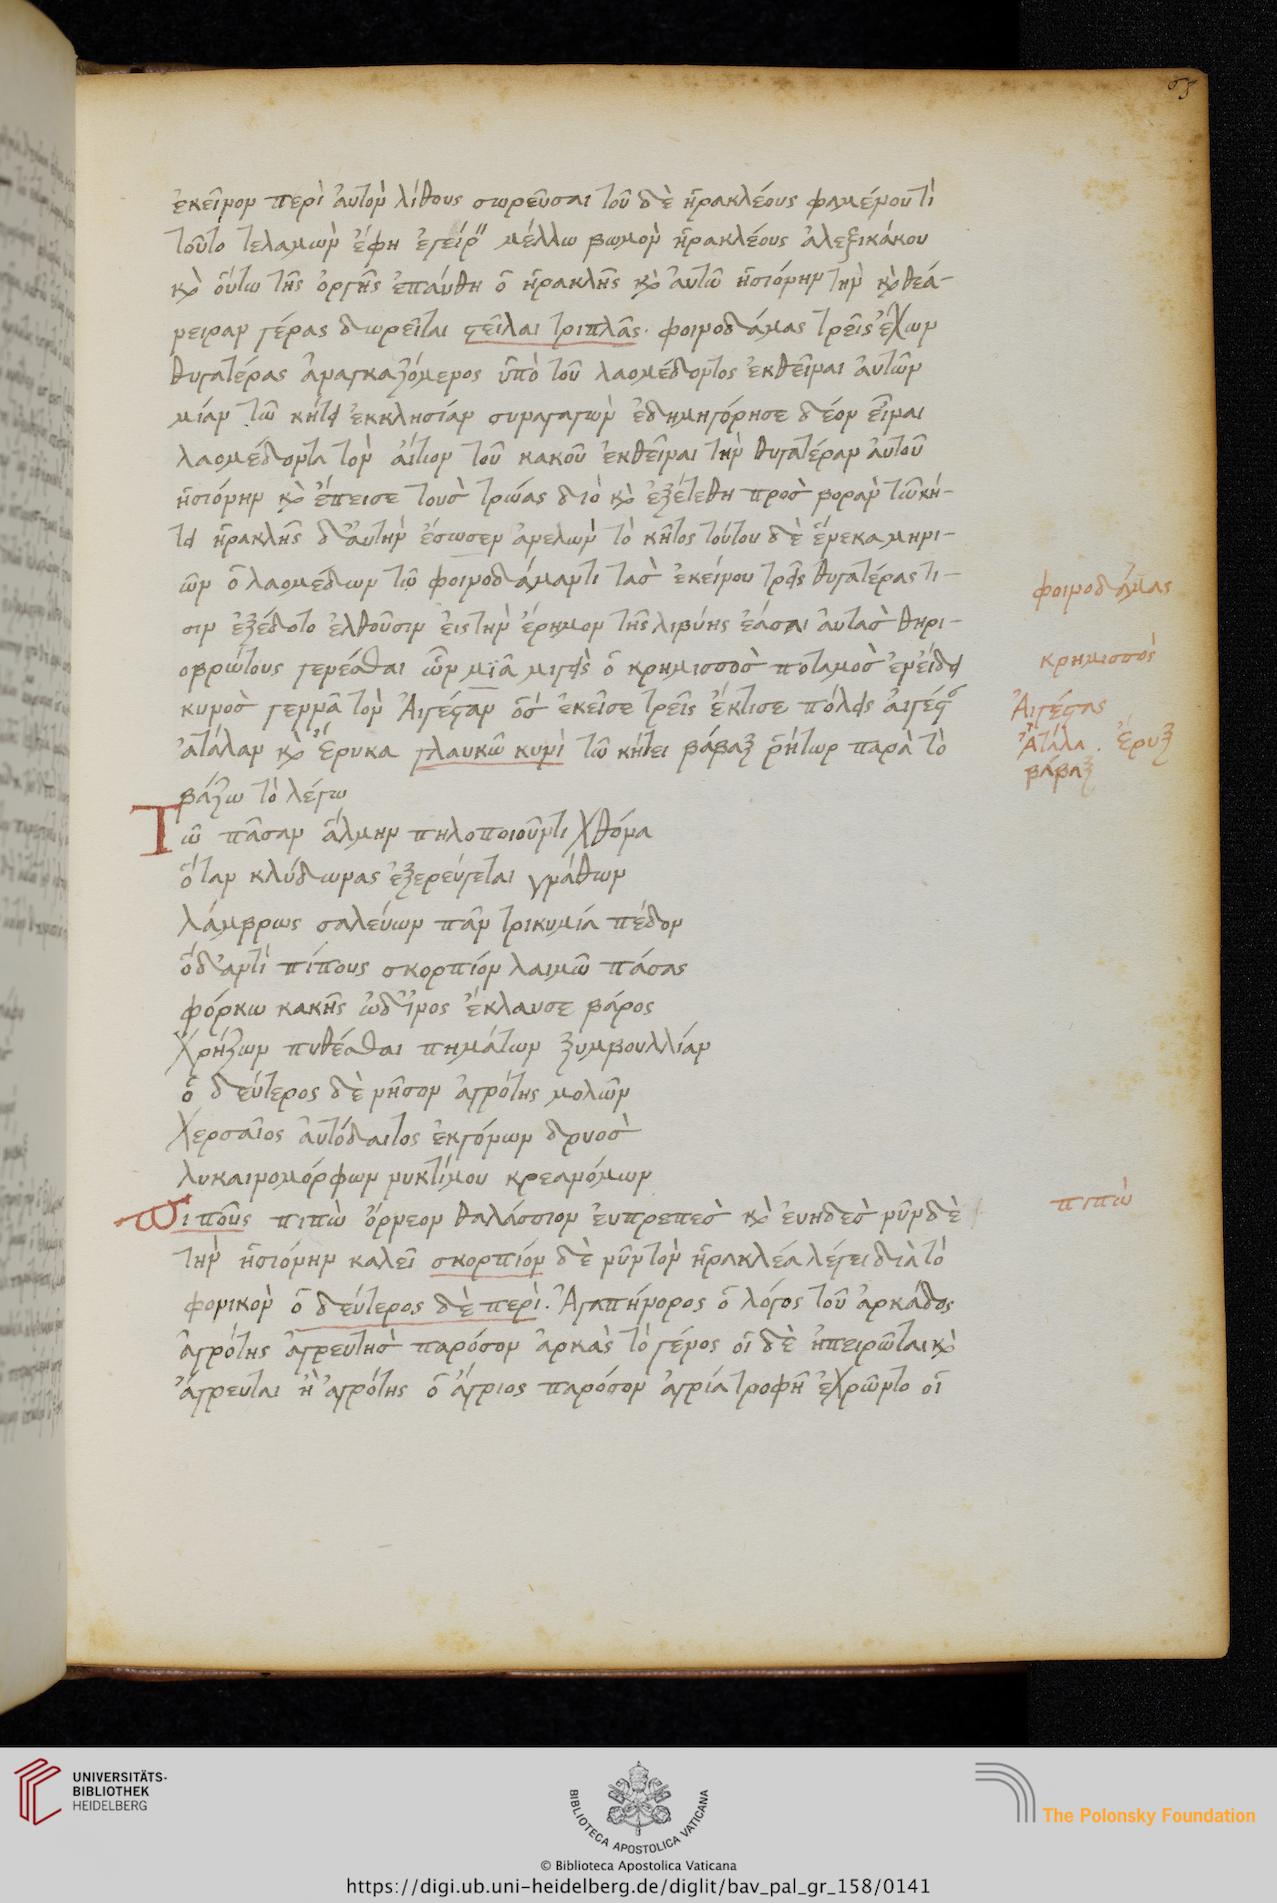 63
ἐκεῖνον περὶ ἀυτὸν λίθους σωρεῦσαι τοῦ δὲ ἡρακλέους φαμένου τὶ
τοῦτό τελαμὼν ἔφη ἐγείρ μέλλω βωμὸν ἡρακλέους ἀλεξικάκου
κὸ ὅυτω τῆς ὀργῆς ἐπάυθη ὁ ἡρακλῆς κὸ ἀυτῶ ἡσιόνην τὴν κὸ θεά-
νειραν γέρας δωρεῖται ϛεῖλαι τριπλᾶς. φοινοδάμας τρεῖς ἔχων
θυγατέρας ἀναγκαζόμενος ὑπὸ τοῦ λαομέδοντος ἐκθεῖναι ἀυτῶν
μίαν τῶ κήτει ἐκκλησίαν συναγαγὼν ἐδημηγόρησε δέον εἶναι
λαομέδοντα τὸν ἀίτιον τοῦ κακοῦ ἐκθεῖναι τὴν θυγατέραν ἀυτοῦ
ἡσιόνην κὸ ἔπεισε τοὺσ τρώας διὸ κὸ ἐξετέθη προσ βορὰν τῶ κή-
τει ἡρακλῆς δ' ἀυτὴν ἔσωσεν ἀνελὼν τὸ κῆτος τούτου δὲ ἕνεκα μηνι-
ῶν ὁ λαομέδων τῶ φοινοδάμαντι τὰσ ἐκείνου τρεῖς θυγατέρας τι-
σιν ἐξέδοτο ἐλθοῦσιν ἐις τὴν ἔρημον τῆς λιβύης ἐάσαι ἀυτὰσ θηρι-
οβρώτους γενέσθαι ὧν μϊᾶ μιγεὶς ὁ κρημισσὸσ ποταμὸσ ἐν εἴδει
κυνὸσ γεννᾶ τὸν Ἀιγέϛαν ὅσ ἐκεῖσε τρεῖς ἔκτισε πόλεις ἀιγέϛ
ἀτάλαν κὸ Ἔρυκα γλαυκῶ κυνὶ τῶ κήτει βάβαξ ῥήτωρ παρὰ τὸ
βάζω τὸ λέγω
Τῶ πᾶσαν ἅλμην πηλοποιοῦντι χθόνα
ὅταν κλύδωνας ἐξερεύγεται γνάθων
λάμβρως σαλεύων πᾶν τρικυμία πέδον
ὁδ' ἀντὶ πίπους σκορπίον λαιμῶ πάσας
φόρκω κακῆς ὠδῖνος ἔκλαυσε βάρος
χρήζων πυθέσθαι πημάτων ξυμβουλλίαν
ὁ δεύτερος δὲ νῆσον ἀγρότης μολῶν
χερσαῖος ἀυτόδαιτος ἐκγόνων δρυοσ
λυκαινομόρφων νυκτίμου κρεανόμων
Πιποῦς πιπὼ ὄρνεον θαλάσσιον ἐυπρεπὲσ κὸ ἐυηδὲσ νῦν δὲ
τὴν ἡσιόνην καλεῖ σκορπίον δὲ νῦν τὸν ἡρακλέα λέγει διὰ τὸ
φονικὸν ὁ δεύτερος δὲ περὶ. Ἀγαπήνορος ὁ λόγος τοῦ ἀρκάδος
ἀγρότης ἀγρευτὴσ παρόσον ἀρκὰς τὸ γένος οἱ δὲ ἠπειρῶται κὸ
ἄγρευται ἢ ἀγρότης ὁ ἄγριος παρόσον ἀγρία τροφῆ ἐχρῶντο οἱ
φοινοδάμας
κρημισσὸς
Ἀιγέϛας
Ἄτάλα. Ἔρυξ
βάβαξ
πιπὼ
UNIVERSITÄTS-
BIBLIOTHEK
HEIDELBERG
BIBLIOTECA APOSTOLICA VATICANA
The Polonsky Foundation
© Biblioteca Apostolica Vaticana
https://digi.ub.uni-heidelberg.de/diglit/bav_pal_gr_158/0141